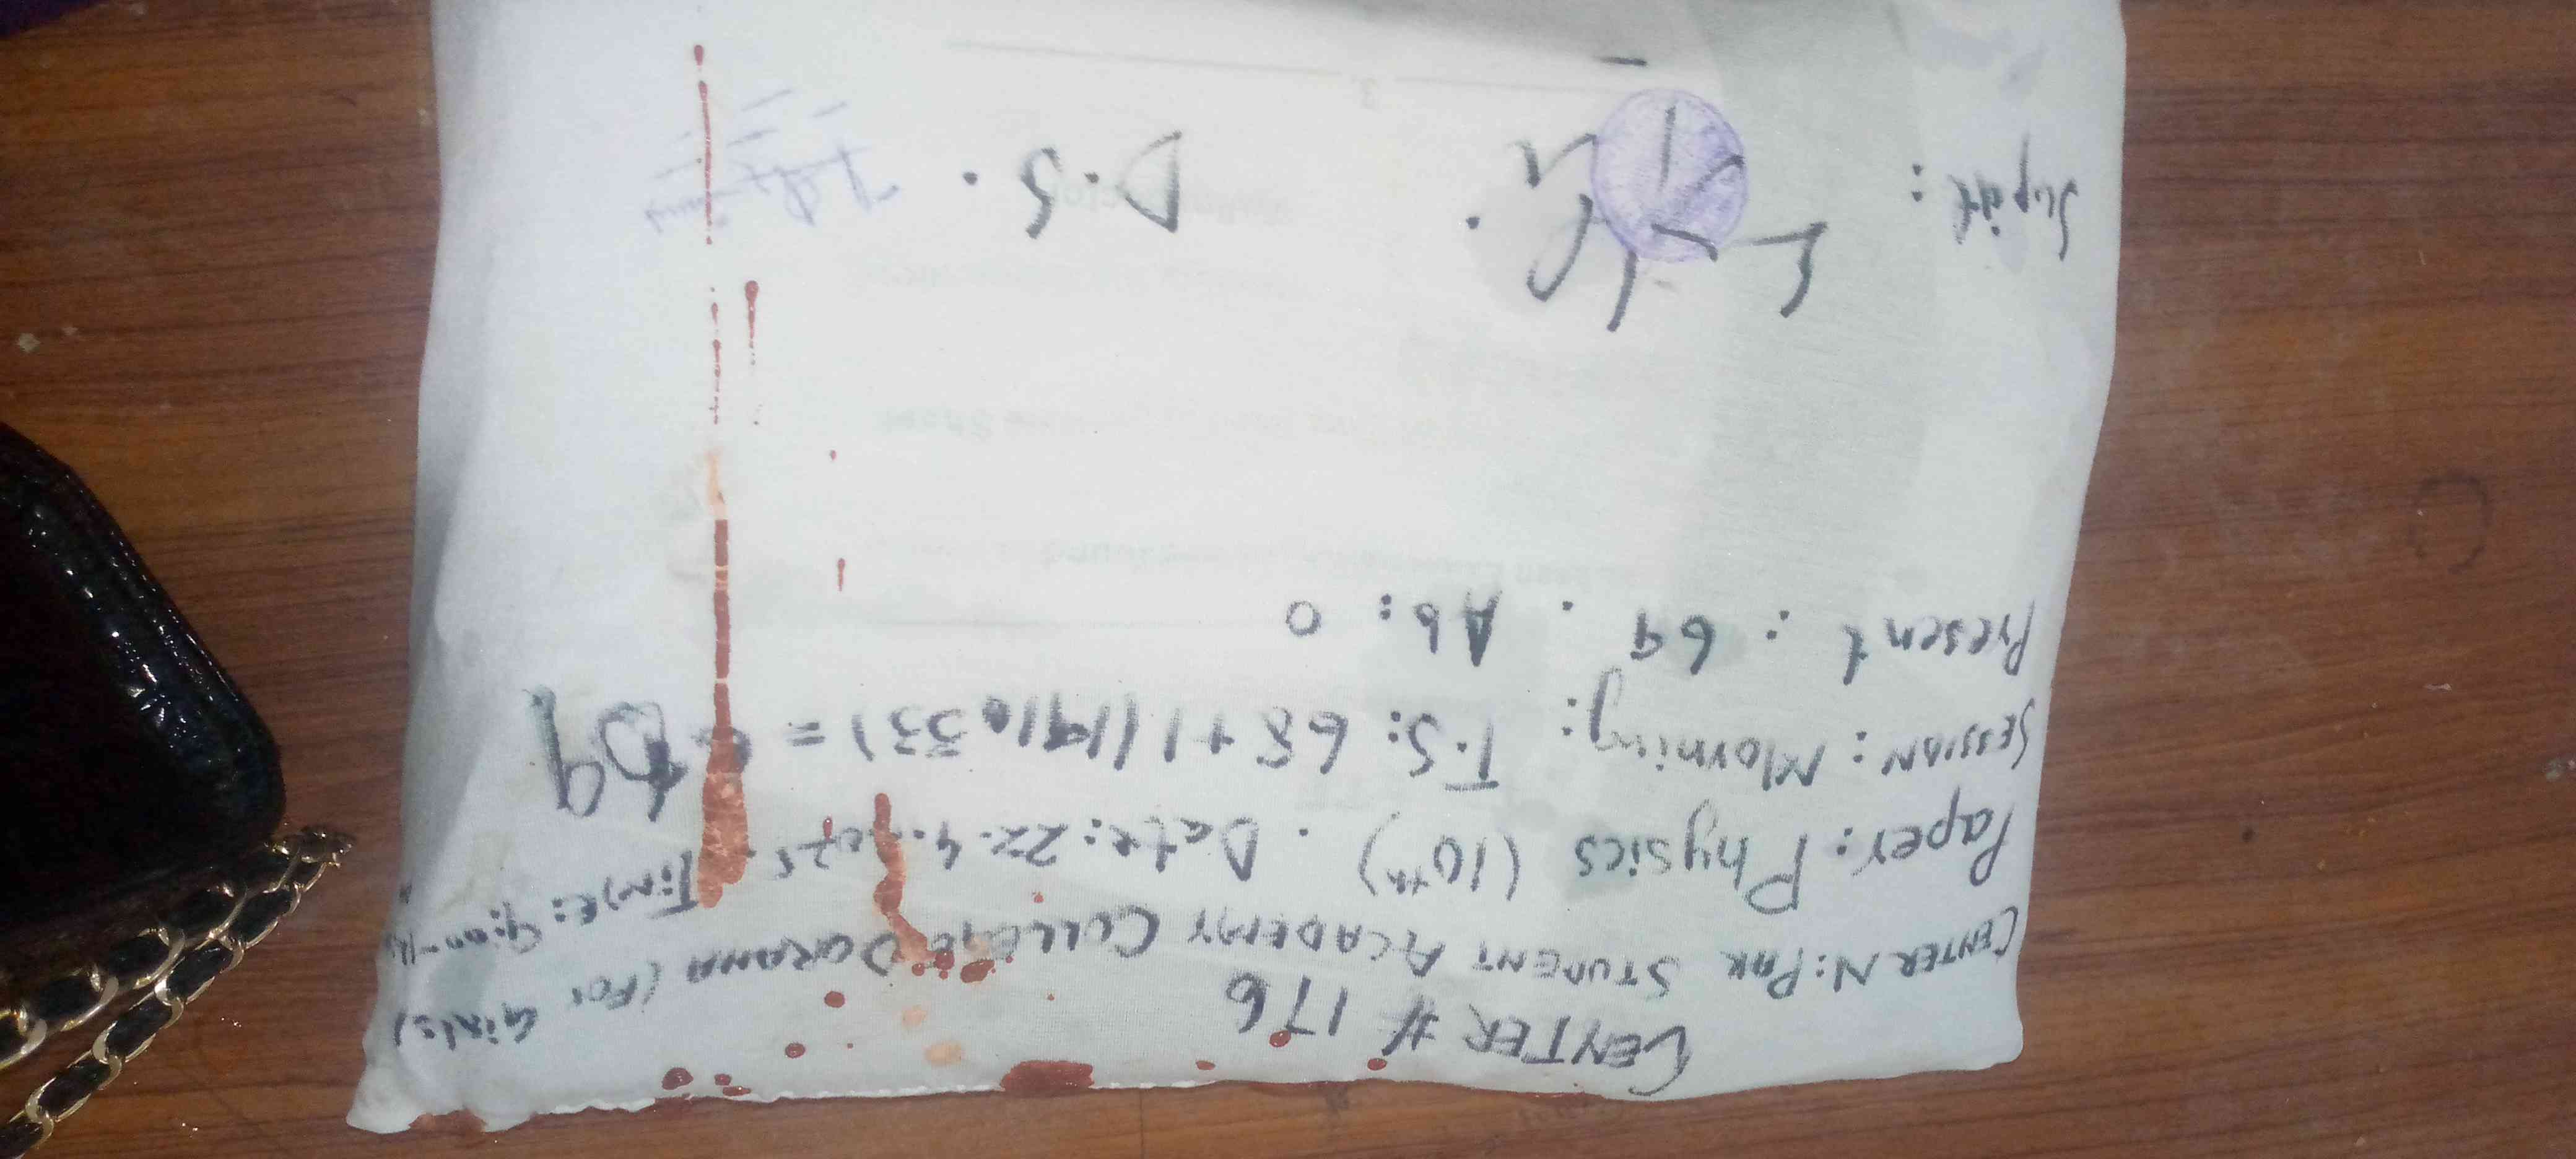 CENTER # 176
CENTER N: PAK STUDENT ACADEMY COLLEGE DGRAHA (For Girls)
Paper: Physics (10th) . Date: 22.4.2025. Time: 9:00-11:
SESSION: Morning: T.S: 68+1(191053) = 69
Present : 69 . Ab: 0
Supdt : D.S.